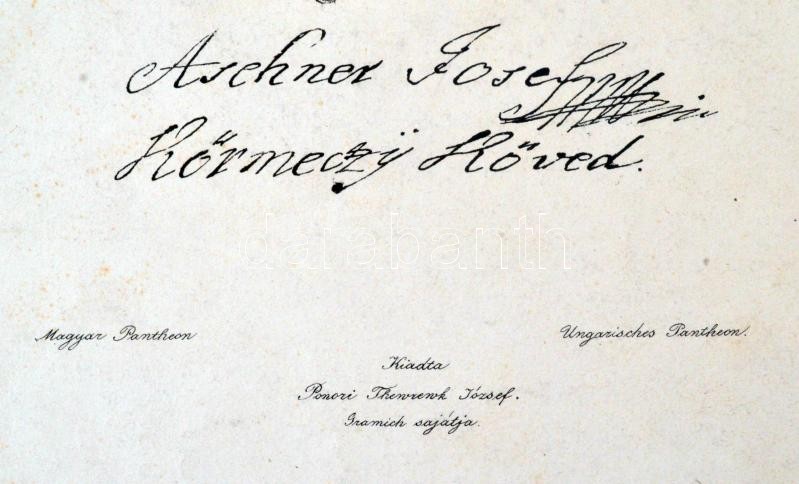 Aschner Josef
Körmeczÿ Köved.
darabanth
Magyar Pantheon
Ungarisches Pantheon.
Kiadta
Ponori Thewrewk József.
Gramich sajátja.